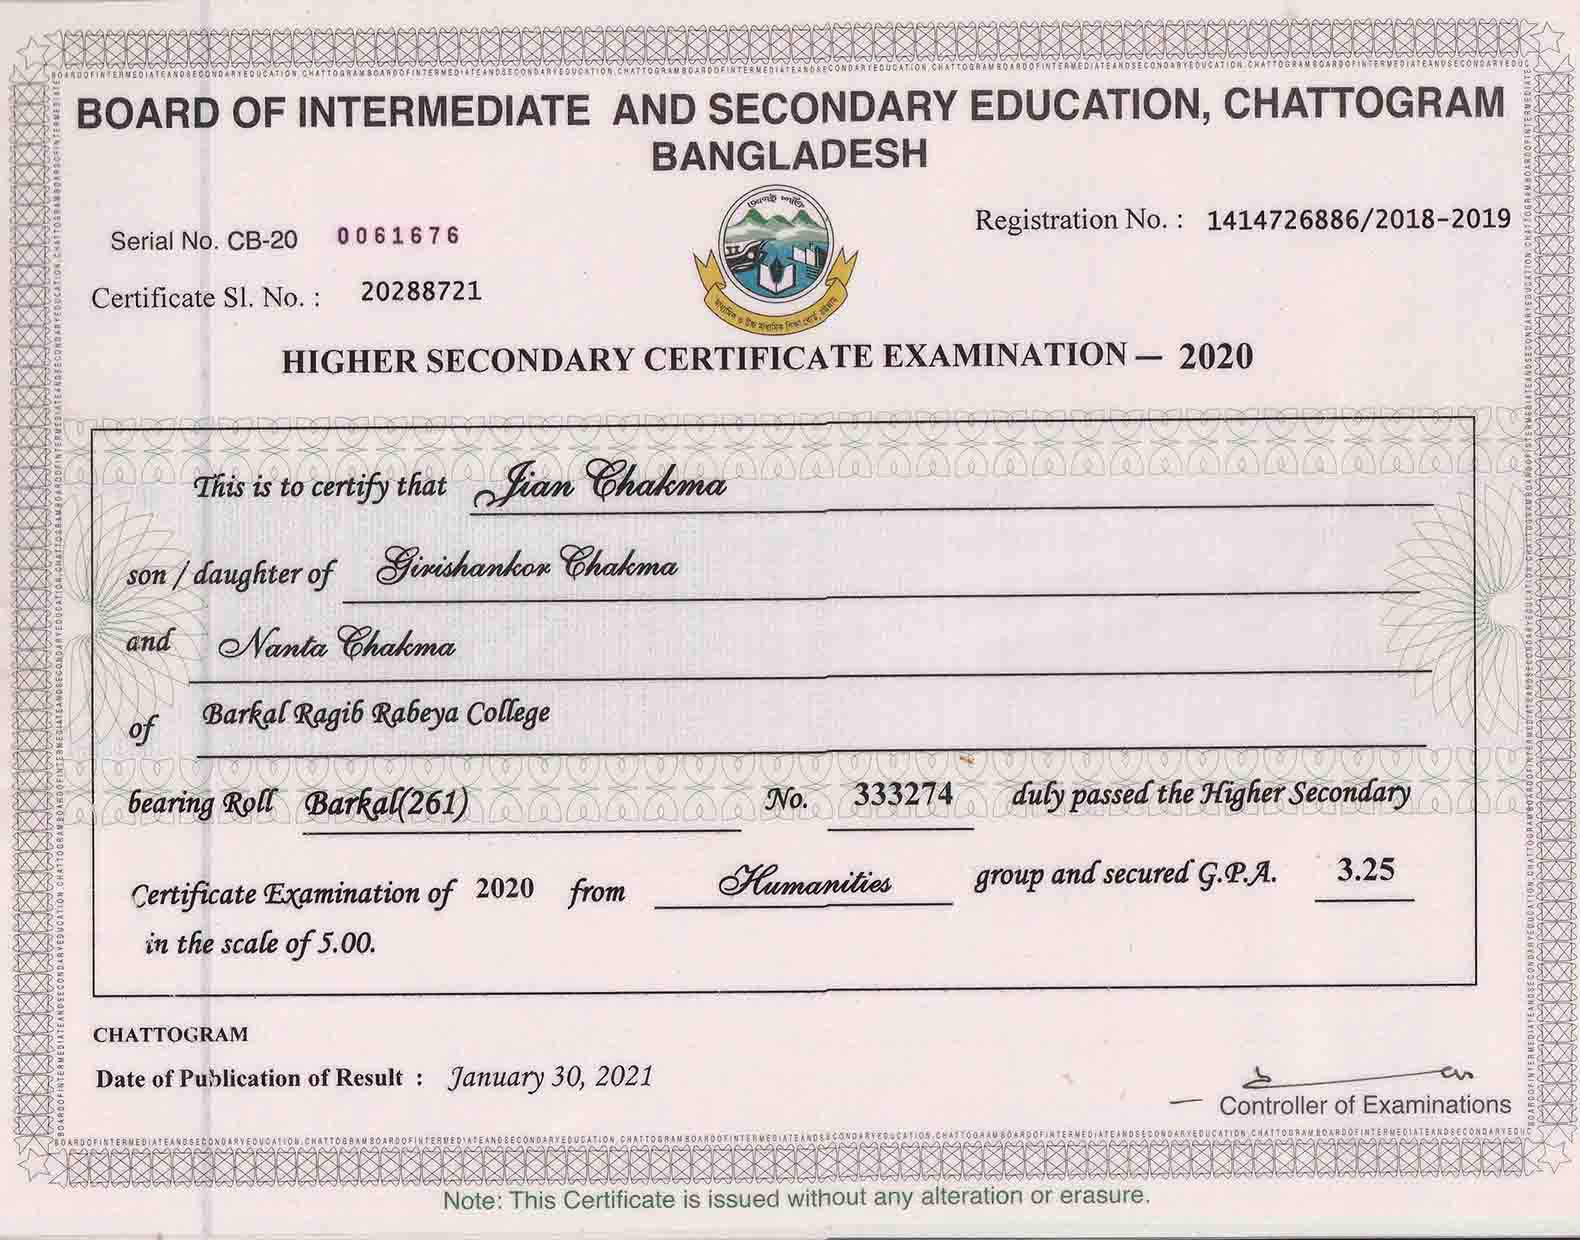 BOARD OF INTERMEDIATE AND SECONDARY EDUCATION, CHATTOGRAM
BANGLADESH
Serial No. CB-20 0061676
Registration No. : 1414726886/2018-2019
Certificate Sl. No. : 20288721
মাধ্যমিক ও উচ্চ মাধ্যমিক শিক্ষা বোর্ড, চট্টগ্রাম
HIGHER SECONDARY CERTIFICATE EXAMINATION — 2020
This is to certify that Jian Chakma
son / daughter of Girishankor Chakma
and Nanta Chakma
of Barkal Ragib Rabeya College
bearing Roll Barkal(261) No. 333274 duly passed the Higher Secondary
Certificate Examination of 2020 from Humanities group and secured G.P.A. 3.25
in the scale of 5.00.
CHATTOGRAM
Date of Publication of Result : January 30, 2021
Controller of Examinations
Note: This Certificate is issued without any alteration or erasure.